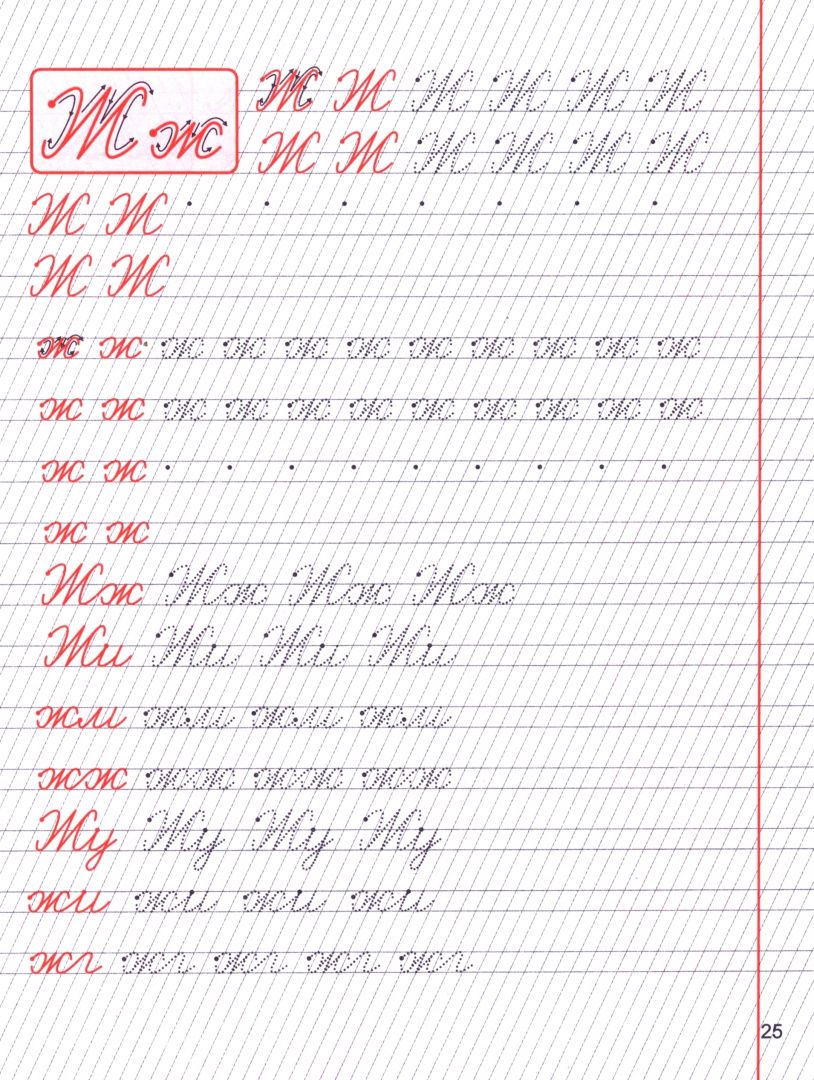 Ж ж
Ж Ж Ж Ж Ж Ж
Ж Ж Ж Ж Ж Ж
Ж Ж
Ж Ж
ж ж ж ж ж ж ж ж ж ж ж
ж ж ж ж ж ж ж ж ж ж ж
ж ж
ж ж
Жж Жж Жж Жж
Жи Жи Жи Жи
жм жм жм жм
жж жж жж жж
Жу Жу Жу Жу
жи жи жи жи
жг жг жг жг
25